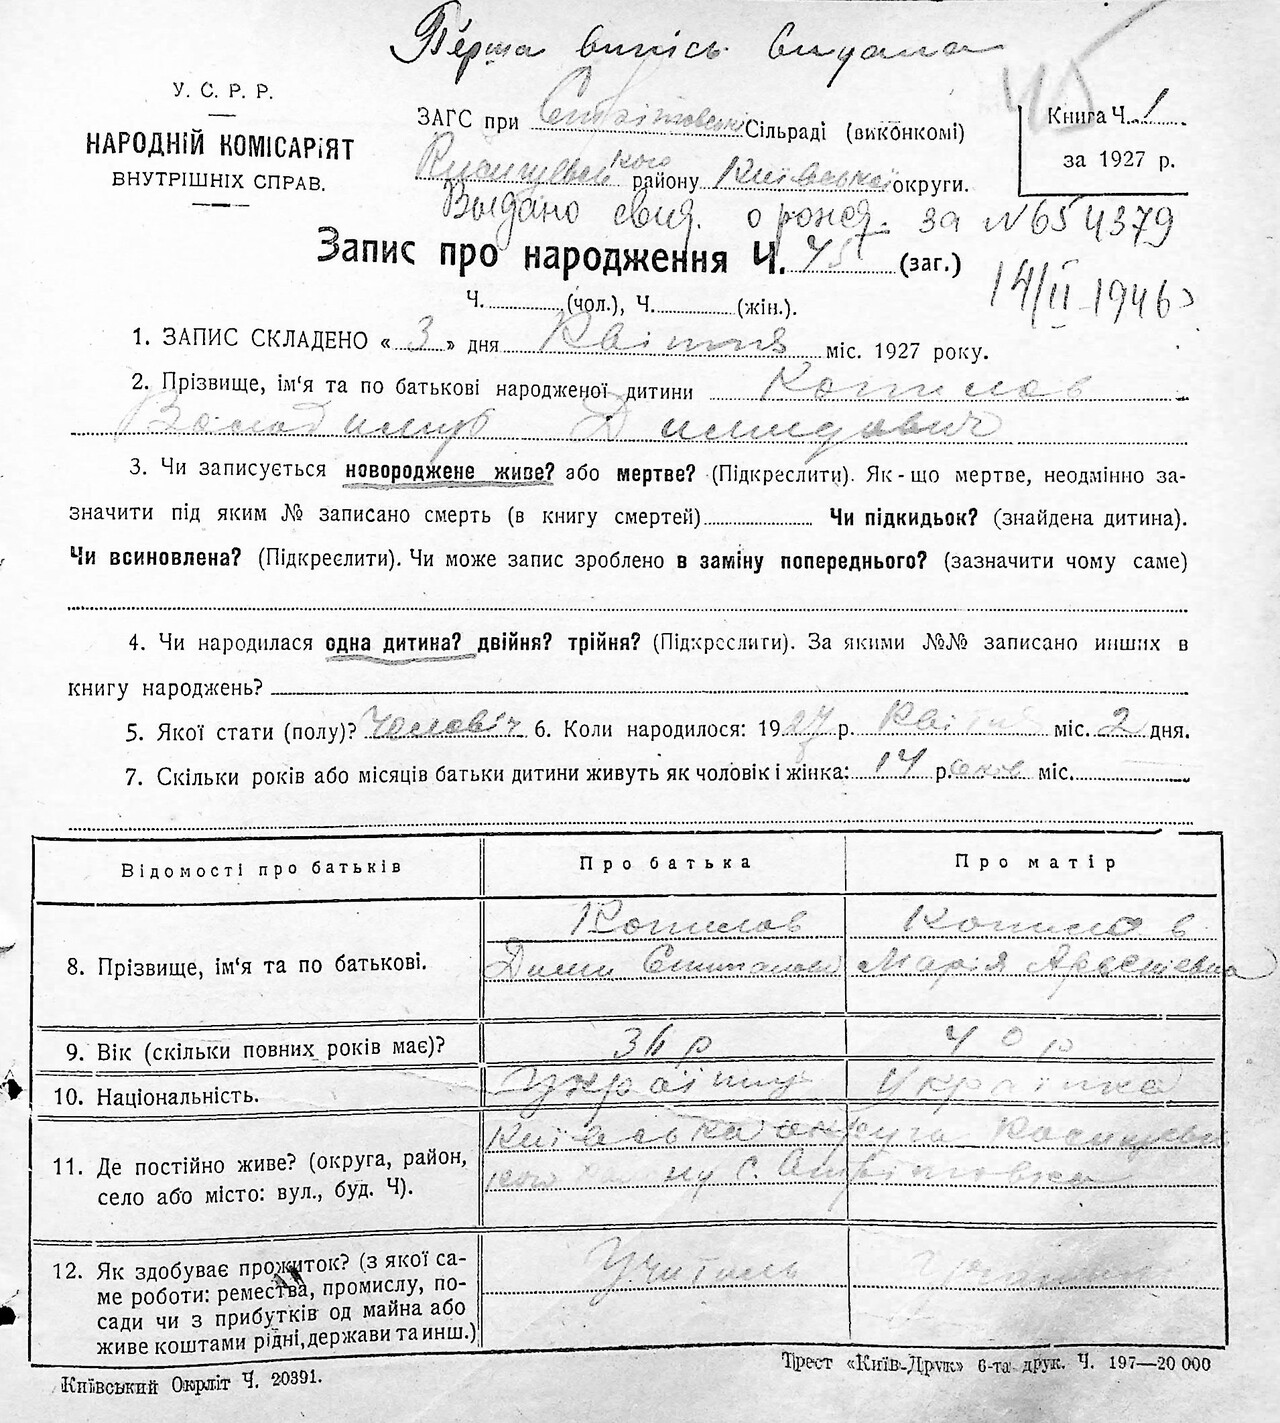 Перша випись видана
У. С. Р. Р.
НАРОДНІЙ КОМІСАРІЯТ
ВНУТРІШНІХ СПРАВ.
ЗАГС при Сільраді (виконкомі)
району Київської округи.
Книга Ч. 1
за 1927 р.
45
Выдано свид. о рожд. за № 654379
14/II 1946
Запис про народження Ч. 45 (заг.)
Ч. (чол.), Ч. (жін.).
1. ЗАПИС СКЛАДЕНО « 3 » дня Квітня міс. 1927 року.
2. Прізвище, ім'я та по батькові народженої дитини Копилов
Володимир Димидович
3. Чи записується новороджене живе? або мертве? (Підкреслити). Як-що мертве, неодмінно за-
значити під яким № записано смерть (в книгу смертей) Чи підкидьок? (знайдена дитина).
Чи всиновлена? (Підкреслити). Чи може запис зроблено в заміну попереднього? (зазначити чому саме)
4. Чи народилася одна дитина? двійня? трійня? (Підкреслити). За якими №№ записано инших в
книгу народжень?
5. Якої стати (полу)? Чоловіч 6. Коли народилося: 1927 р. Квітня міс. 2 дня.
7. Скільки років або місяців батьки дитини живуть як чоловік і жінка: 14 років міс.
Відомості про батьків Про батька Про матір
8. Прізвище, ім'я та по батькові. Копилов Копилов
Марія
9. Вік (скільки повних років має)? 36 р 40 р
10. Національність. Українка
11. Де постійно живе? (округа, район,
село або місто: вул., буд. Ч).
Київська округа
кого району с.
12. Як здобуває прожиток? (з якої са-
ме роботи: ремества, промислу, по-
сади чи з прибутків од майна або
живе коштами рідні, держави та инш.)
Учитель
Київський Окрліт Ч. 20391.
Трест «Київ-Друк» 6-та друк. Ч. 197—20 000